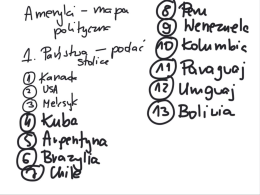 Ameryki - mapa
polityczna
1. Państwa - podać
stolice
1 Kanada
2 USA
3 Meksyk
4 Kuba
5 Argentyna
6 Brazylia
7 Chile
8 Peru
9 Wenezuela
10 Kolumbia
11 Paragwaj
12 Urugwaj
13 Boliwia